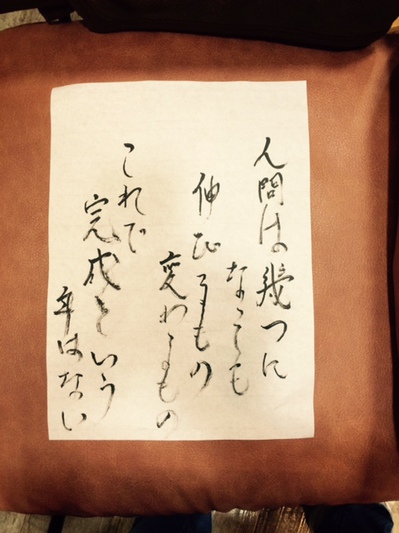 人間は幾つに
なっても
伸びるもの
変わるもの
これで
完成という
年はない